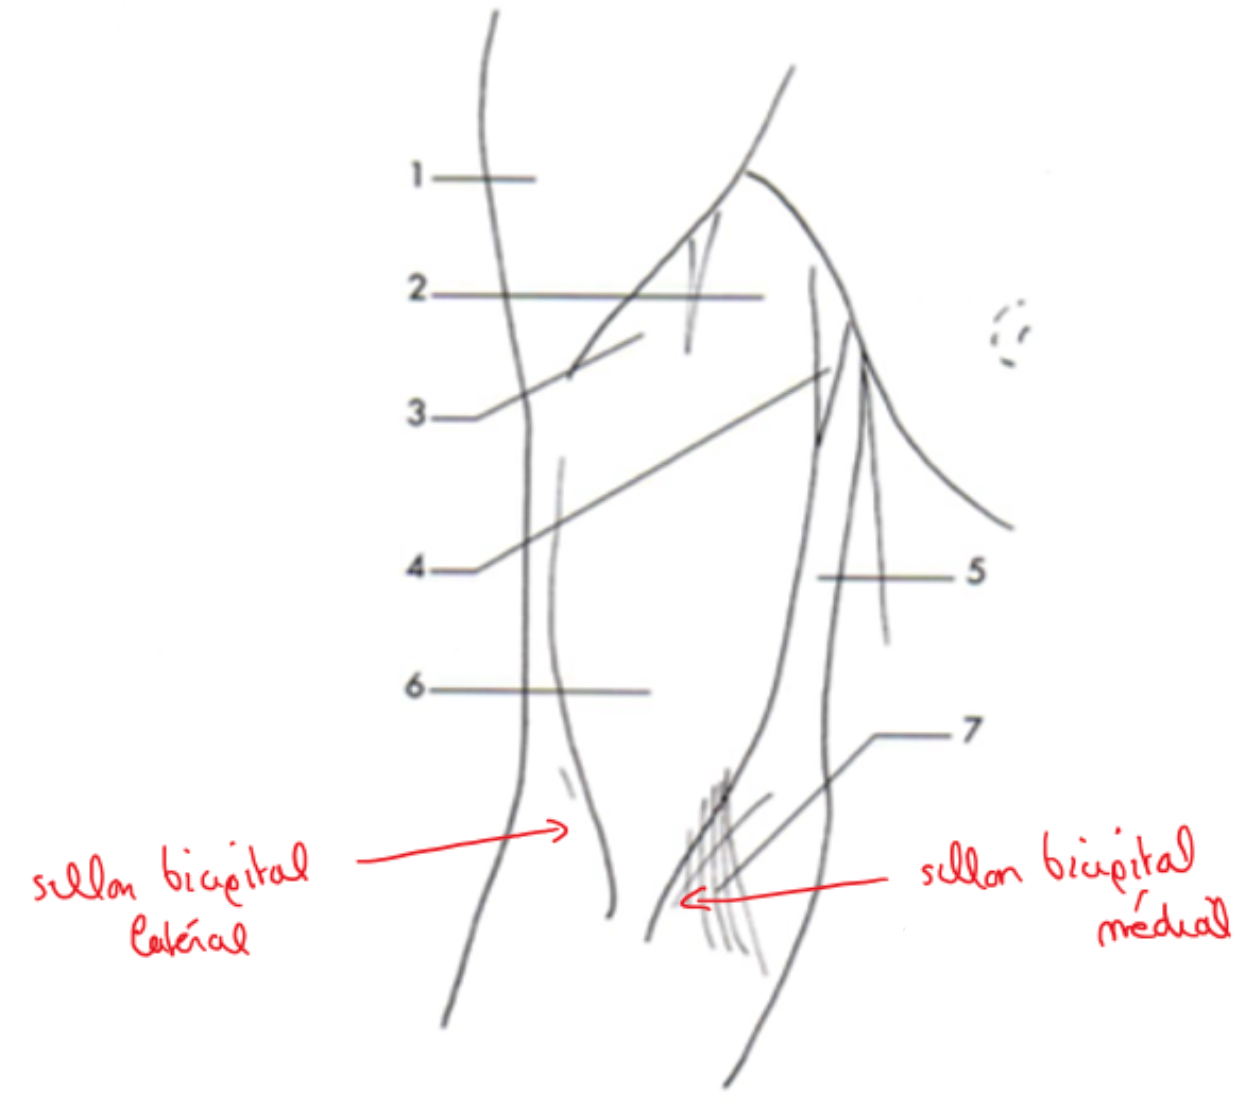 1
2
3
4
5
6
7
sillon bicipital
latéral
sillon bicipital
médial